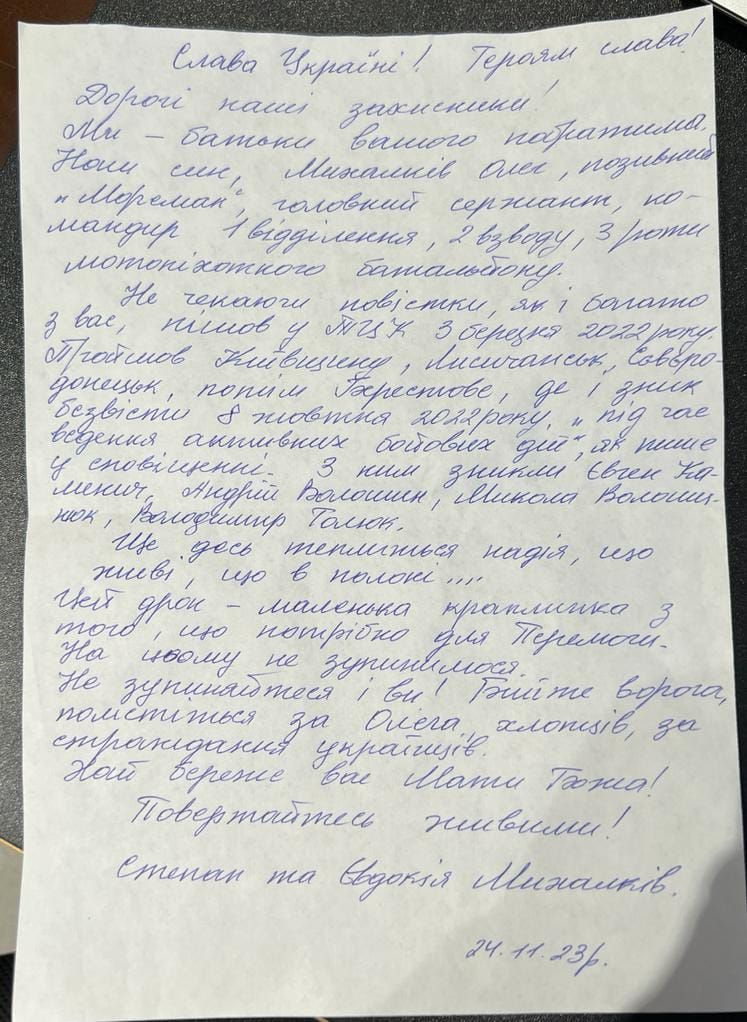 Слава Україні! Героям слава!
Дорогі наші захисники!
Ми – батьки вашого побратима.
Наш син, Михалків Олег, позивний
"Морсман", головний сержант, ко-
мандир 1 відділення, 2 взводу, 3 роти
мотопіхотного батальйону.
Не чекаючи повістки, як і багато
з вас, пішов у ТЦК 3 березня 2022 року.
Пройшов Київщину, Лисичанськ, Сєвєро-
донецьк, потім Берестове, де і зник
безвісти 8 жовтня 2022 року, "під час
ведення активних бойових дій", як пише
у сповіщенні. З ним зникли Євген Ка-
менич, Андрій Волошин, Микола Волощ-
нюк, Володимир Толюк.
Ще досі теплиться надія, що
живі, що в полоні....
Цей дрон – маленька краплинка з
того, що потрібно для Перемоги.
На цьому не зупинимося.
Не зупиняйтеся і ви! Бийте ворога,
помстіться за Олега, хлопців, за
страждання українців.
Хай береже вас Мати Божа!
Повертайтесь живими!
Степан та Євдокія Михалків.
24.11.23р.